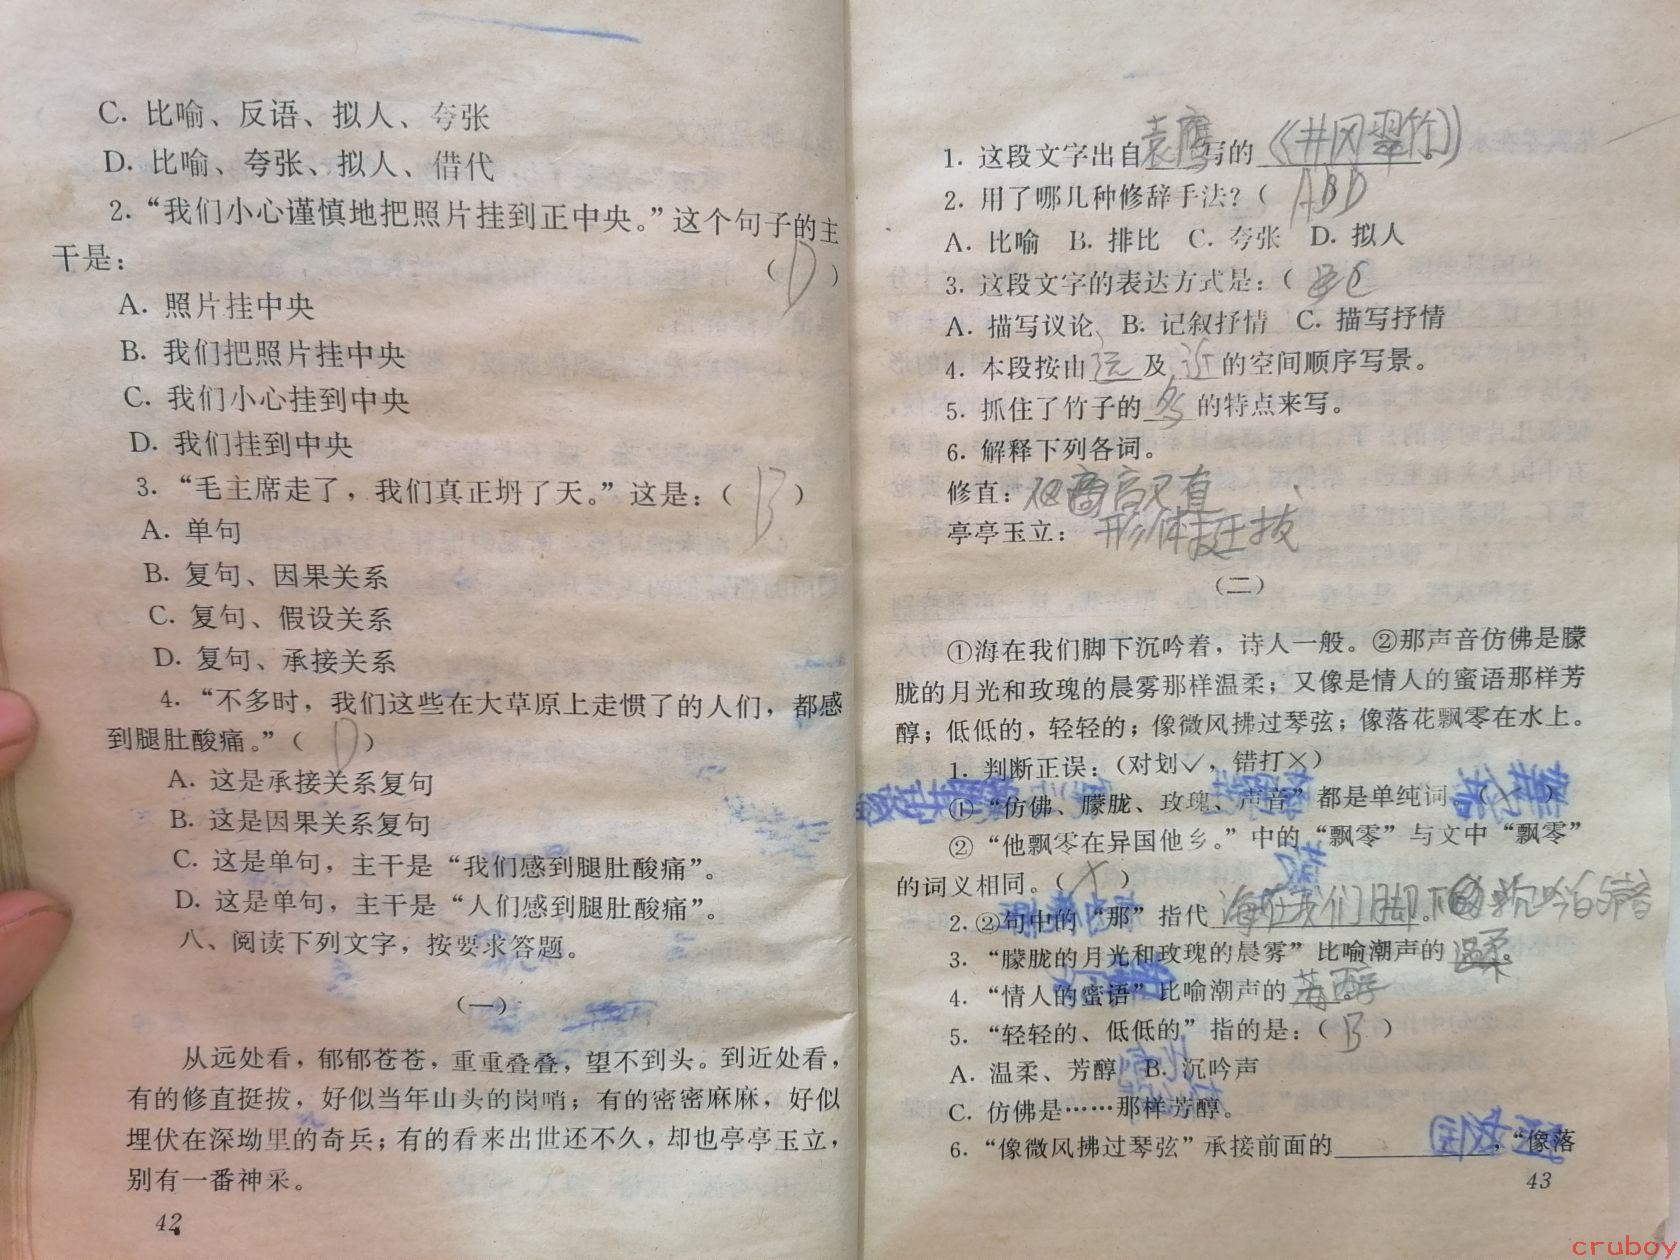 C. 比喻、反语、拟人、夸张
D. 比喻、夸张、拟人、借代
2. “我们小心谨慎地把照片挂到正中央。”这个句子的主
干是： （D）
A. 照片挂中央
B. 我们把照片挂中央
C. 我们小心挂到中央
D. 我们挂到中央
3. “毛主席走了，我们真正坍了天。”这是：（B）
A. 单句
B. 复句、因果关系
C. 复句、假设关系
D. 复句、承接关系
4. “不多时，我们这些在大草原上走惯了的人们，都感
到腿肚酸痛。”（D）
A. 这是承接关系复句
B. 这是因果关系复句
C. 这是单句，主干是“我们感到腿肚酸痛”。
D. 这是单句，主干是“人们感到腿肚酸痛”。
八、阅读下列文字，按要求答题。
（一）
从远处看，郁郁苍苍，重重叠叠，望不到头。到近处看，
有的修直挺拔，好似当年山头的岗哨；有的密密麻麻，好似
埋伏在深坳里的奇兵；有的看来出世还不久，却也亭亭玉立，
别有一番神采。
42
1. 这段文字出自袁鹰写的《井冈翠竹》。
2. 用了哪几种修辞手法？（ABD
A. 比喻 B. 排比 C. 夸张 D. 拟人
3. 这段文字的表达方式是：（C
A. 描写议论、 B. 记叙抒情 C. 描写抒情
4. 本段按由远及近的空间顺序写景。
5. 抓住了竹子的多的特点来写。
6. 解释下列各词。
修直：高又直
亭亭玉立：形体挺拔
（二）
①海在我们脚下沉吟着，诗人一般。②那声音仿佛是朦
胧的月光和玫瑰的晨雾那样温柔；又像是情人的蜜语那样芳
醇；低低的，轻轻的；像微风拂过琴弦；像落花飘零在水上。
1. 判断正误：（对划✓，错打×）
①“仿佛、朦胧、玫瑰、声音”都是单纯词。（×）
②“他飘零在异国他乡。”中的“飘零”与文中“飘零”
的词义相同。（×）
2. ②句中的“那”指代海在我们脚下沉吟的声音。
3. “朦胧的月光和玫瑰的晨雾”比喻潮声的温柔。
4. “情人的蜜语”比喻潮声的芳醇。
5. “轻轻的、低低的”指的是：（B）
A. 温柔、芳醇 B. 沉吟声
C. 仿佛是……那样芳醇。
6. “像微风拂过琴弦”承接前面的，“像落
43
cruboy